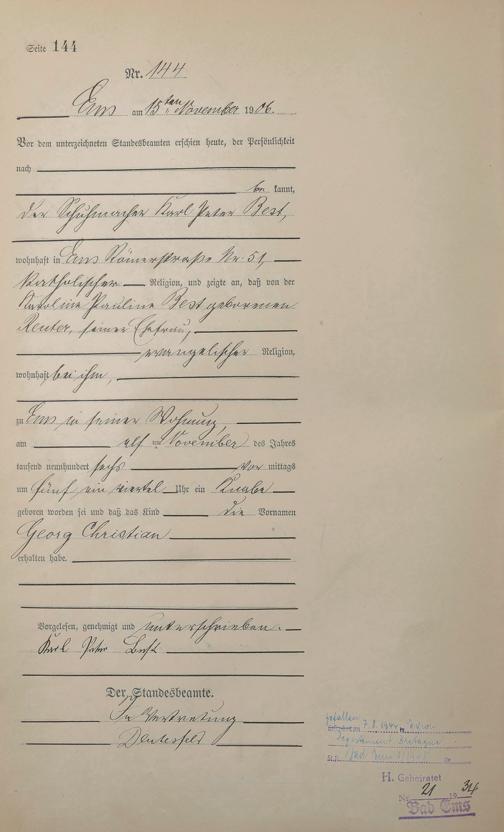 Seite 144
Nr. 144
Ems am 15ten November 1906.
Vor dem unterzeichneten Standesbeamten erschien heute, der Persönlichkeit
nach
be kannt,
der Schuhmacher Karl Peter Best,
wohnhaft in Ems Römerstraße Nr. 51,
katholischer Religion, und zeigte an, daß von der
Karoline Pauline Best geborenen
Reuter, seiner Ehefrau,
evangelischer Religion,
wohnhaft bei ihm,
zu Ems in seiner Wohnung,
am elften November des Jahres
tausend neunhundert sechs Vor mittags
um fünf ein viertel Uhr ein Knabe
geboren worden sei und daß das Kind die Vornamen
Georg Christian
erhalten habe.
Vorgelesen, genehmigt und unterschrieben.
Karl Peter Best
Der Standesbeamte.
In Vertretung
gefallen 7.8.1944
Departement Bretagne
St.A.
H. Geheiratet
Nr. 21 1934
Bad Ems